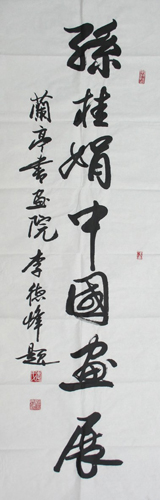 孫桂娟中國画展
蘭亭書画院 李德峰題